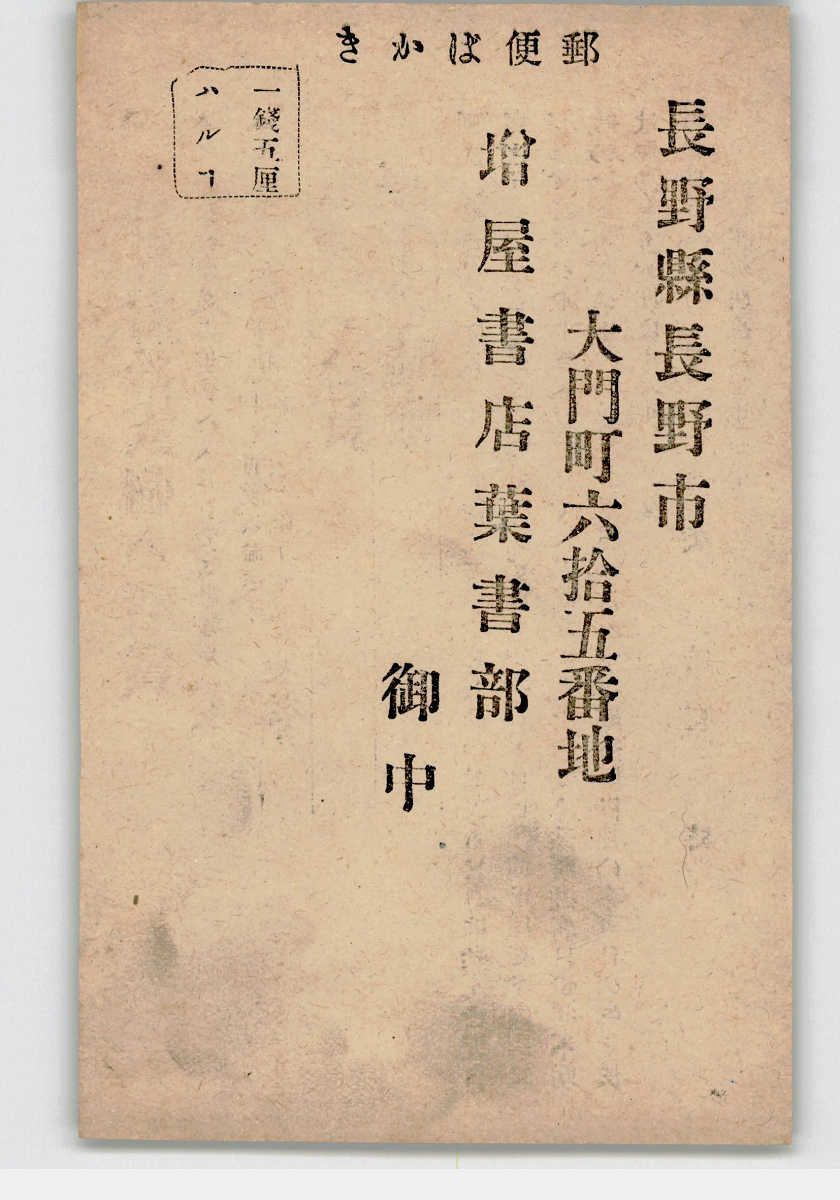 郵便ばかき
長野縣長野市
大門町六拾五番地
増屋書店葉書部
御中
一錢五厘
ハルヿ